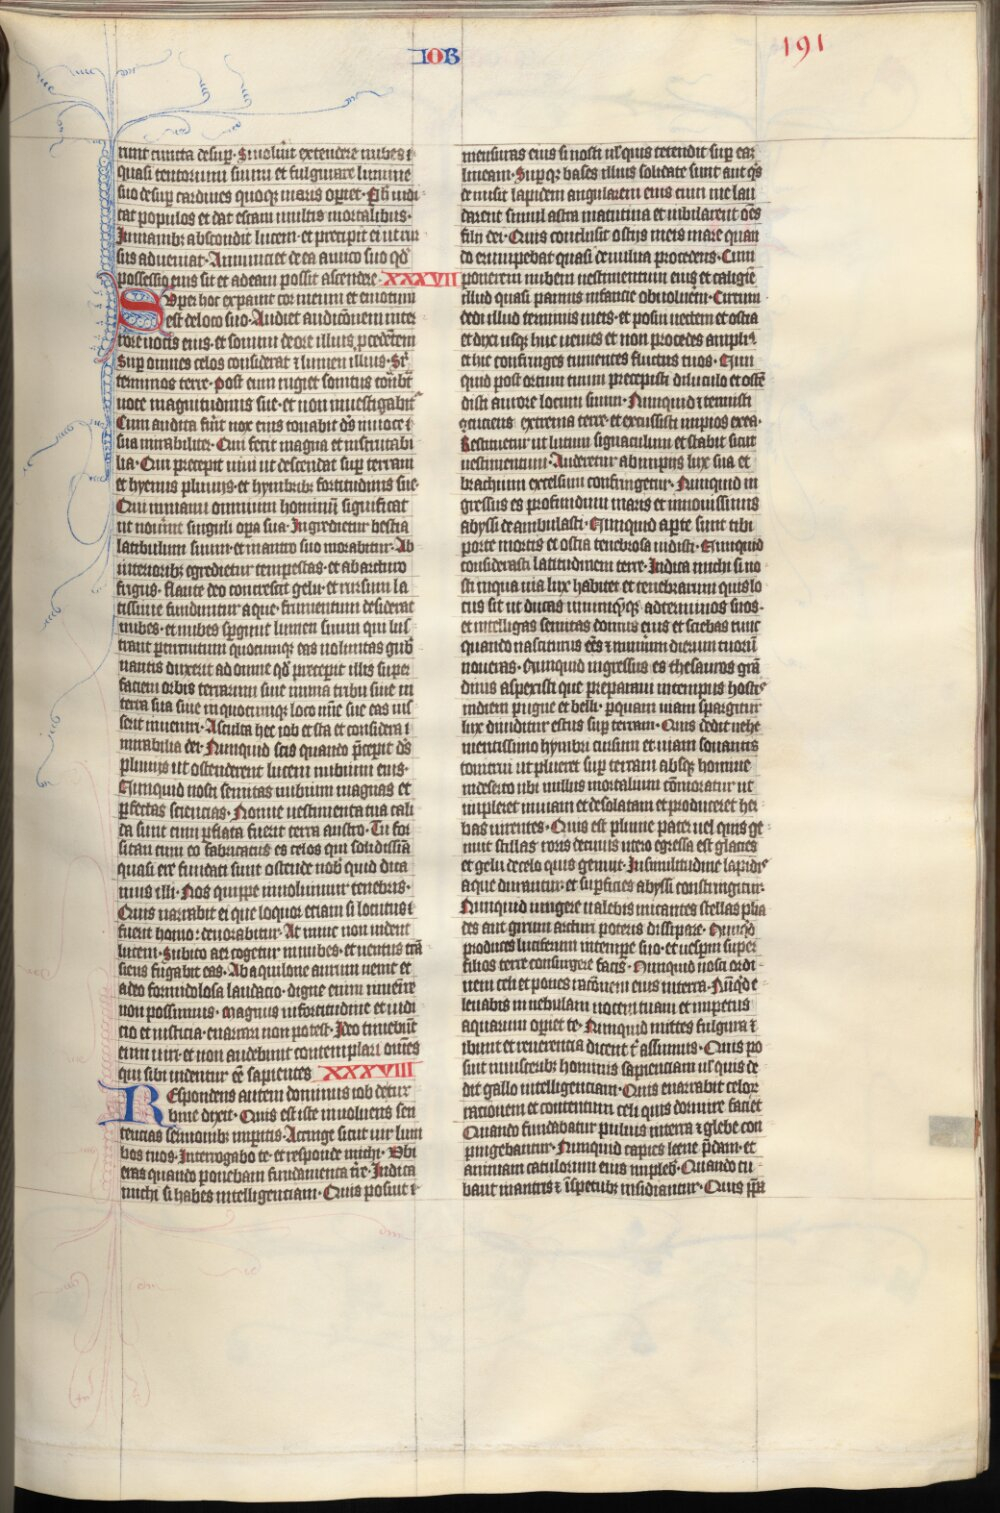 IOB
191
runt cuncta desup̄. Si voluĩt extendere nubes ĩ
quasi tentorium suum et fulgurare lumine
suo desup̄ cardines quoq̢ maris op̄iet. Per h̄ iudi
cat populos et dat escam multis mortalibus.
In manibꝫ abscondit lucem. et precipit ei ut rur
sus adueniat. Annunciat de ea amico suo qđ
possessio eius sit et ad eam possit ascendere. XXXVII
Super hoc expauit cor meum et emotum
est de loco suo. Audiet audicōnem in ter
rore uocis eius. et sonum de ore illius p̄cedētem
Sup̄ omnes celos considerat ⁊ lumen illius. Sr̄
terminos terre. Post eum rugiet sonitus tonab̄t
uoce magnitudinis sue. et non inuestigabit̄
Cum audita fūit uox eius tonabit dš in uoce ĩ
sua mirabiliter. Qui fecit magna et inscrutabi
lia. Qui precepit niui ut descendat sup̄ terram
et hyemis pluuiis. et hymbribꝫ fortitudinis sue.
Qui in manu omnium hominū significat
ut nouīnt singuli opa sua. Ingredietur bestia
latibulum suum. et in antro suo morabitur. Ab
interioribꝫ egredietur tempestas. et ab arcturo
frigus. flante deo concrescit gelu. et rursum la
tissime funduntur aque. frumentum desiderat
nubes. et nubes sp̄gunt lumen suum que lus
trant per circuitum quocunq̢ eas uoluntas gub̄
nantis duxerit ad omne qđ preceperit illis super
faciem orbis terrarum siue in una tribu siue in
terra sua siue in quocunq̢ loco mīe sue eas ius
serit inueniri. Asculta hec iob et sta et considera ĩ
mirabilia dei. Nunquid scis quando p̄cepit dš
pluuiis ut ostenderent lucem nubium eius.
Nunquid nosti semitas nubium magnas et
p̄fectas sciencias. Nonne uestimenta tua cali
da sunt cum p̄flata fuerit terra austro. Tu for
sitan cum eo fabricatus es celos qui solidissīa
quasi ere fundati sunt ostende nob̄ quid dica
mus illi. Nos quippe inuoluimur tenebris.
Quis narrabit ei que loquor eciam si locutus ĩ
fuerit homo: deuorabitur. At nunc non uident
lucem. Subito aer cogetur in nubes. et uentus trā
siens fugabit eas. Ab aquilone aurum uenit et
a deo formidolosa laudacio. digne eum inuenire
non possumus. Magnus in fortitudine et iudi
cio et iusticia. enarrari non potest. Ideo timebūt
eum uiri et non audebunt contemplari omēs
qui sibi uidentur eē sapientes XXXVIII
Respondens autem dominus iob de tur
bine dixit. Quis est iste inuoluens sen
tencias sermonibꝫ imperitis. Accinge sicut uir lum
bos tuos. Interrogabo te. et responde michi. Vbi
eras quando ponebam fundamenta tr̄e. Indica
michi si habes intelligenciam. Quis posuit ĩ
mensuras eius si nosti ul̄ quis tetendit sup̄ eaꝫ
lineam. Sup̄ q̢ bases illius solidate sunt aut q̄s
demisit lapidem angularem eius cum me lau
darent simul astra matutina et iubilarent om̄s
filii dei. Quis conclusit ostiis mare quan
do erumpebat quasi de uulua procedens. Cum
ponerem nubem uestimentum eius et caligīe
illud quasi pannis infancie obuoluerem. Circum
dedi illud terminis meis. et posui uectem et ostia
et dixi usq̢ huc uenies et non procedes amplꝰ
et hic confringes tumentes fluctus tuos. Nun
quid post ortum tuum precepisti diluculo et ostē
disti aurore locum suum. Nunquid tenuisti
concuciens extrema terre. et excussisti impios ex ea.
Restituetur ut lutum signaculum et stabit sicut
uestimentum. Auferetur ab impiis lux sua et
brachium excelsum confringetur. Nunquid in
gressus es profundum maris et in nouissimis
abyssi deambulasti. Nunquid ap̄te sunt tibi
porte mortis et ostia tenebrosa uidisti. Nunquid
considerasti latitudinem terre. Indica michi si no
sti in qua uia lux habitet et tenebrarum quis lo
cus sit ut ducas unumq̢q̢ ad terminos suos.
et intelligas semitas domus eius et sciebas tunc
quando nasciturus eēs ⁊ numerum dierum tuorū
noueras. Nunquid ingressus es thesauros grā
dinis aspexisti que preparaui in tempus hostis
in diem pugne et belli. per quam uiam spargitur
lux diuiditur estus sup̄ terram. Quis dedit uehe
mentissimo hymbri cursum et uiam sonantis
tonitrui ut plueret sup̄ terram absq̢ homine
in deserto ubi nullus mortalium cōmoratur ut
impleret inuiam et desolatam et produceret her
bas uirentes. Quis est pluuie pater uel quis ge
nuit stillas roris de cuius utero egressa est glacies
et gelu de celo quis genuit. In similitudine lapidis
aque durantur. et sup̄ficies abyssi constringitur.
Nunquid iungere ualebis micantes stellas plia
des aut girum arcturi poteris dissipare. Nunqđ
producis luciferum in temp̄e suo. et uesperum super
filios terre consurgere facis. Nunquid nosti ordi
nem celi et pones racōnem eius in terra. Nūqđ e
leuabis in nebulam uocem tuam et impetus
aquarum op̄iet te. Nunquid mittes fulgura ⁊
ibunt et reuerencia dicent t̄ assumus. Quis po
suit in uisceribꝫ hominis sapienciam ul̄ quis de
dit gallo intelligenciam. Quis enarrabit celoꝝ
racionem et concentum celi quis dormire faciet
Quando fundabatur puluis in terra ⁊ glebe con
pingebantur. Nunquid capies leene p̄dam. et
animam catulorum eius impleb̄. Quando cu
bant in antris ⁊ ī specubꝫ insidiantur. Quis p̄pa